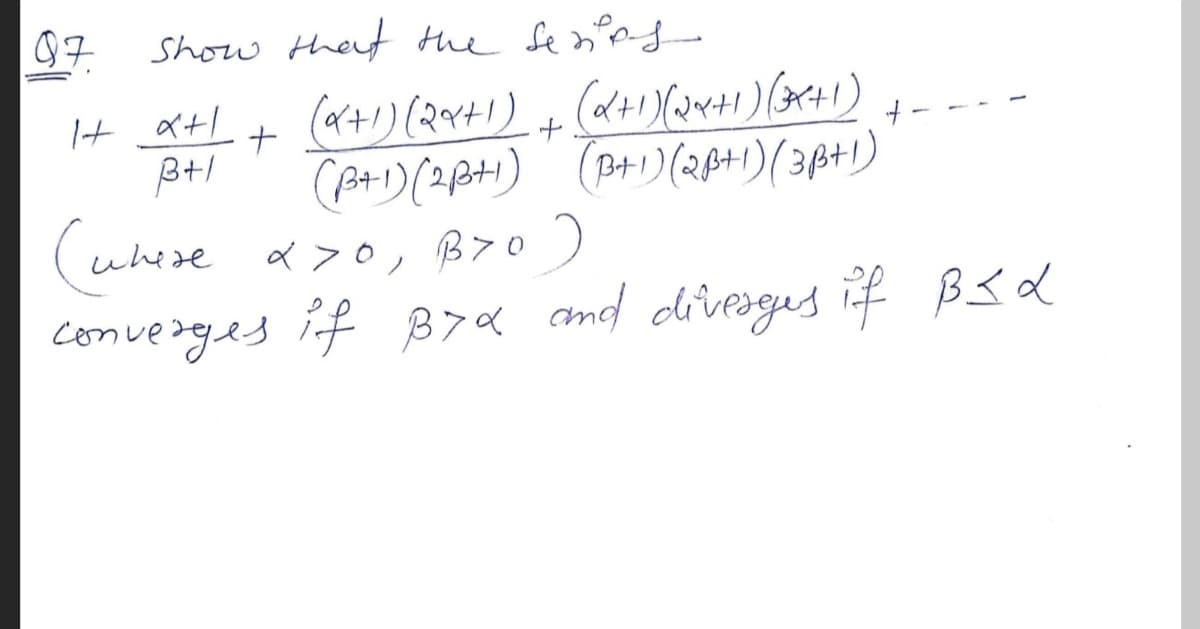 Q7. Show that the series
1+ α+1/β+1 + (α+1)(2α+1)/(β+1)(2β+1) + (α+1)(2α+1)(3α+1)/(β+1)(2β+1)(3β+1) +----
(where α>0, β>0)
converges if β>α and diverges if β≤α